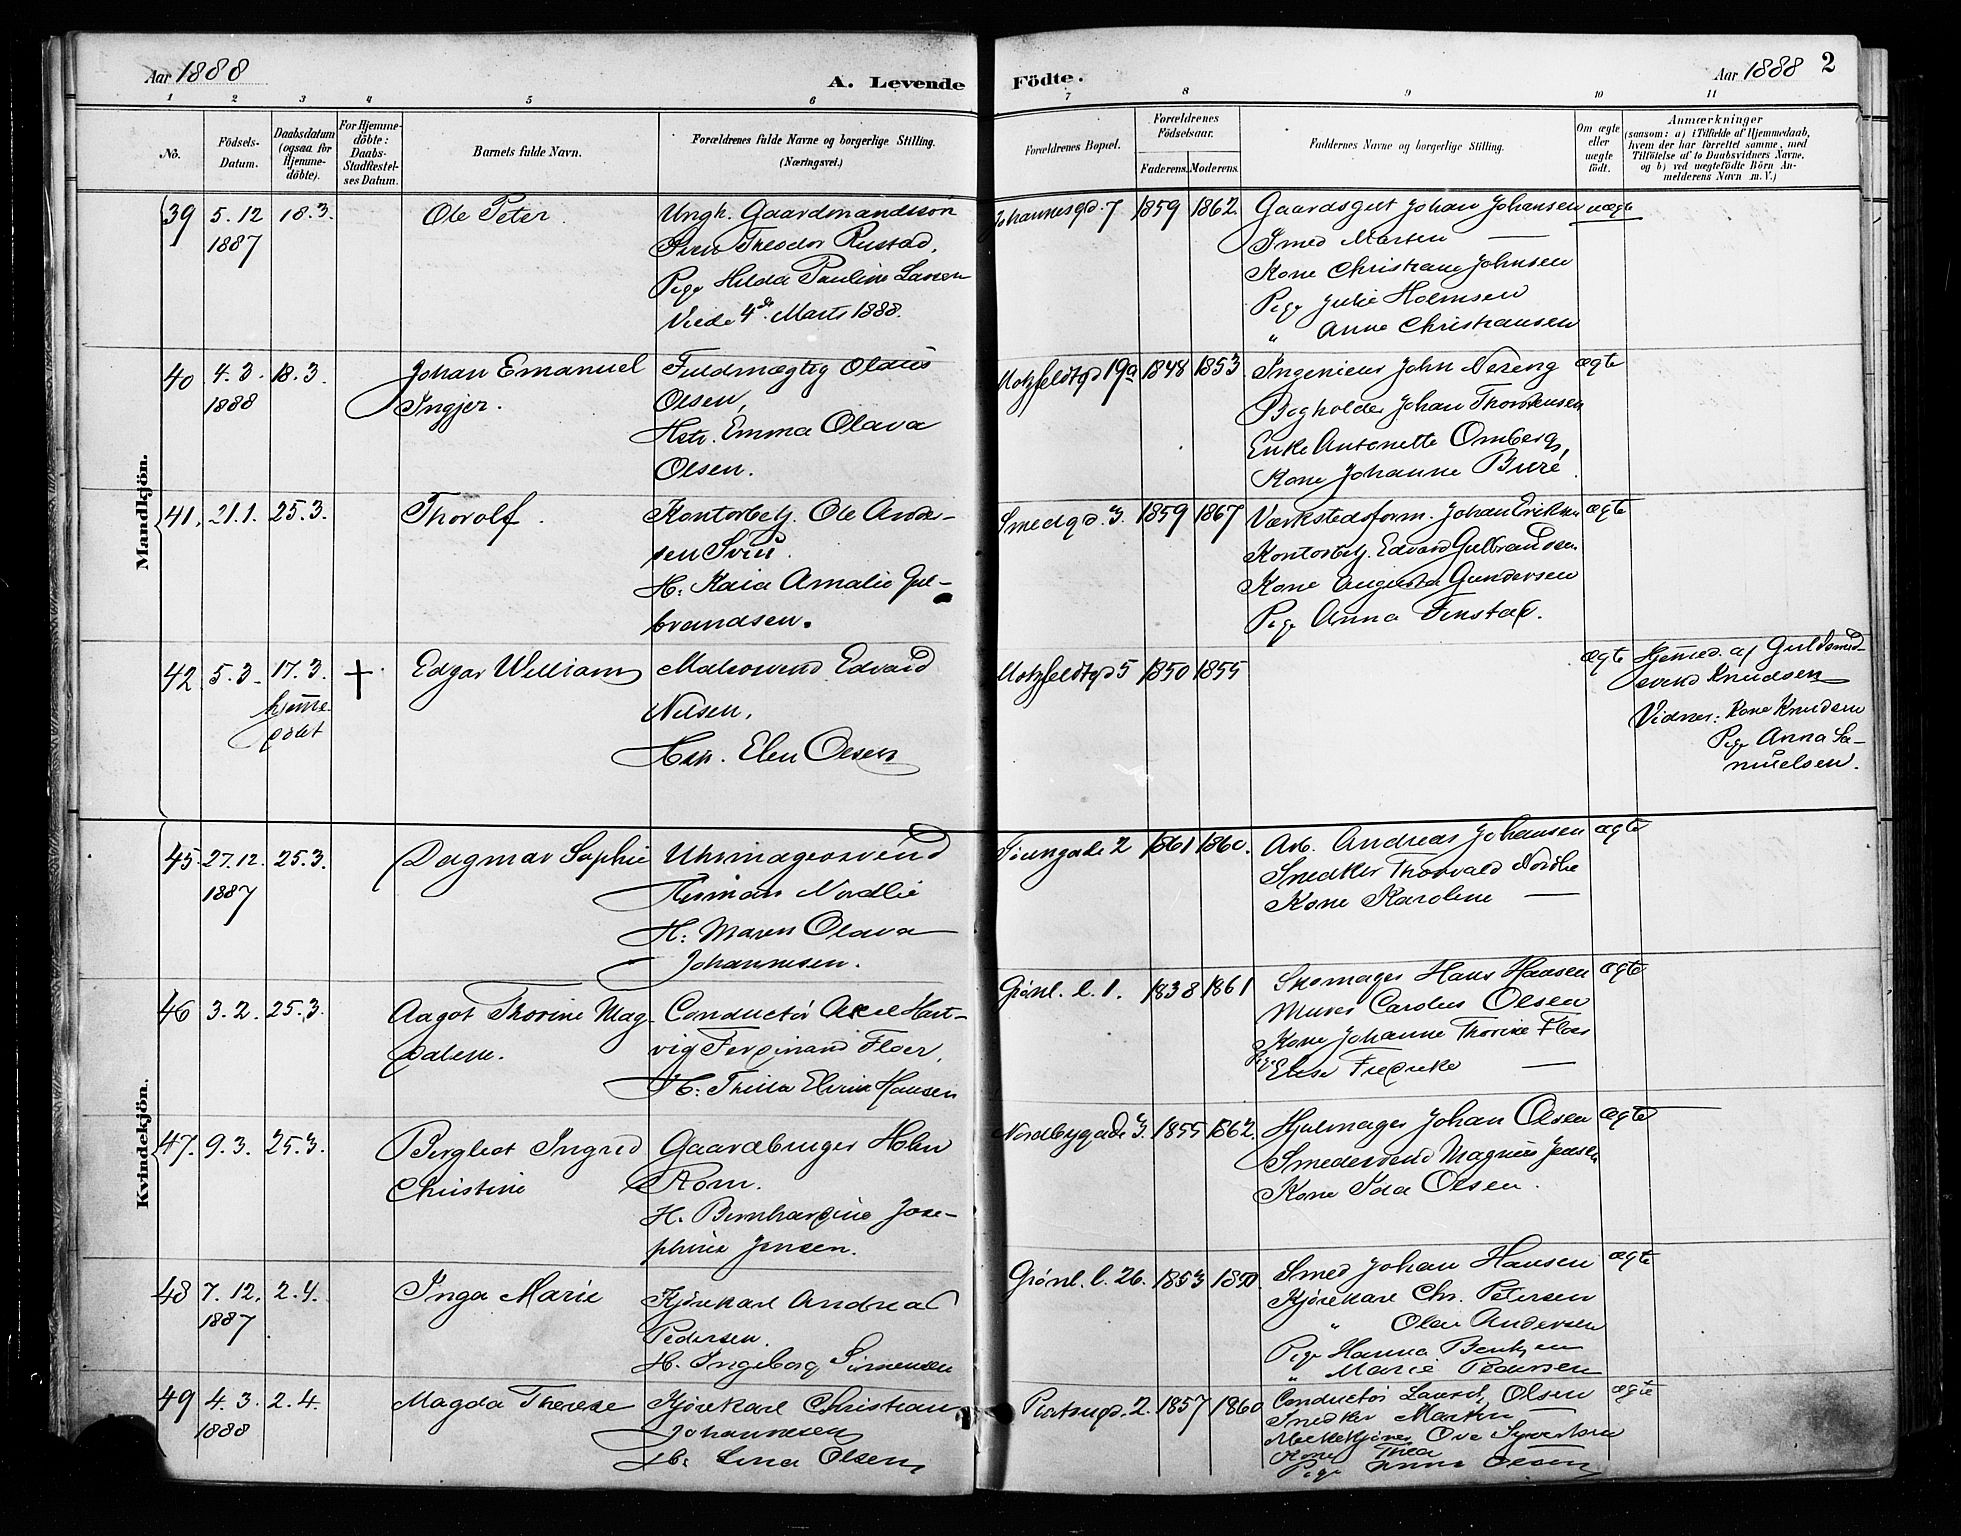 Aar 1888
A. Levende Födte.
Aar 1888 2
1 2 3 4 5 6 7 8 9 10 11
No.
Födsels-Datum.
Daabsdatum (ogsaa for Hjemme-döbte).
For Hjemme-döbte: Daabs-Stadfæstel-ses Datum.
Barnets fulde Navn.
Forældrenes fulde Navne og borgerlige Stilling. (Næringsvei.)
Forældrenes Bopæl.
Forældrenes Födselsaar.
Faderens. Moderens.
Faddernes Navne og borgerlige Stilling.
Om ægte eller uægte födt.
Anmærkninger
(saasom: a) i Tilfælde af Hjemmedaab, hvem der har forrettet samme, med Tilföielse af to Daabsvidners Navne, og b) ved uægtefödte Börn An-melderens Navn m. V.)
Mandkjön.
39 5.12 1887 18.3. Ole Peter.
Ungk. Gaardmandssön
Theodor Rustad.
Pige Hilda Pauline Larsen
Viede 4de Marts 1888.
Johannesgd. 7 1859 1862
Gaardsgut Johan Johansen uægte
Smed Martin —
Kone Christiane Johnsen
Pige Julie Holmsen
" Anne Christiansen
40 4.3. 1888 18.3. Johan Emanuel
Ingjer.
Fuldmægtig Olaus
Olsen,
Hstr. Emma Olava
Olsen.
Motzfeldtgd 19a 1848 1853
Ingeniør John Nereng ægte
Bogholder Johan Thorstensen
Enke Antonette Omberg,
Kone Johanne Buré.
41. 21.1. 25.3. Thorolf.
Kontorbetj. Ole Ander-
sen Svee.
H: Kaia Amalie Gul-
brandsen.
Smedgd. 3. 1859 1867
Værkstedsform. Johan Eriksen ægte
Kontorbetj. Edvard Gulbrandsen
Kone Augusta Gundersen
Pige Anna Finstad.
42 5.3. 17.3. hjemme døbt + Edgar William
Malersvend Edvard
Nilsen,
Hstr. Elen Olsen
Motzfeldtgd 5 1850 1855
ægte Hjemmed. af Guldsmed-
svend Knudsen
Vidner: Kone Knudsen
Pige Anna Sa-
muelsen.
Kvindekjön.
45 27.12. 1887 25.3. Dagmar Sophie
Uhrmagersvend
Herman Nordlie
H: Maren Olava
Johannesen.
Tøiengade 2 1861 1860.
Arb. Andreas Johansen ægte
Snedker Thorvald Nordlie
Kone Karoline —
46 3.2. 25.3. Aagot Thorine Mag-
dalene.
Conductør Axel Hart-
vig Ferdinand Floer.
H: Thilla Elvine Hansen
Grønl. l. 1. 1838 1861
Skomager Hans Hansen ægte
Murer Carolus Olsen
Kone Johanne Thorine Floer
Pige Elise Fredrikke —
47. 9.3. 25.3. Bergliot Ingrid
Christine
Gaardbruger Hehn
Rom.
H. Bernhardine Jose-
phine Jensen.
Nordbygade 3. 1855 1862.
Hjulmager Johan Olsen ægte
Smedesvend Magnus Jensen
Kone Ida Olsen.
48 7.12. 1887 2.4. Inga Marie
Kjørekarl Andreas
Pedersen.
H. Ingeborg Simensen
Grønl. l. 26. 1853 1850.
Smed Johan Hansen ægte
Kjørekarl Chr. Petersen
" Olau Andersen
Pige Hanna Bentzen
" Marie Pedersen
49 4.3. 1888 2.4. Magda Therese
Kjørekarl Christian
Johannesen
H: Lina Olsen,
Platougd. 2. 1857 1860
Conductør Laurits Olsen ægte
Snedker Martin —
Melkekjører Ove Syvertsen
Kone Thea —
Pige Anna Olsen